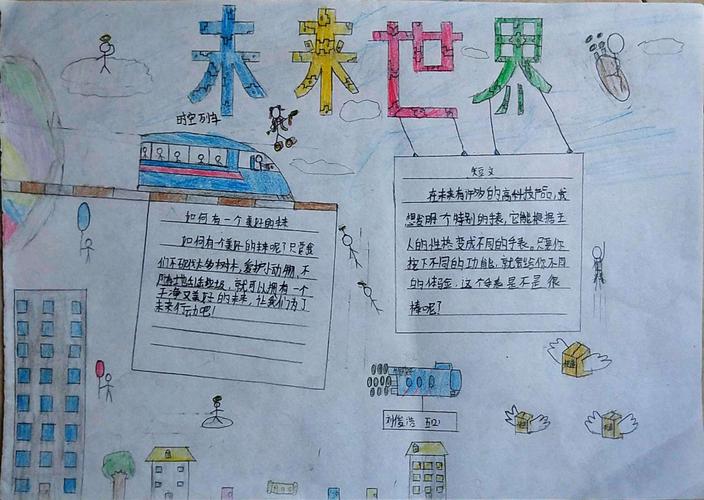 未来世界
时空列车
如何有一个美好的未来
如何有一个美好的未来呢?只要我
们不砍伐大多树木,爱护小动物,不
随地乱丢垃圾,就可以拥有一个
干净又美好的未来,让我们为了
未来行动吧!
短文
在未来有许多的高科技产品,我
想发明一个特别的手表,它能根据主
人的性格变成不同的手表。只要你
按下不同的功能,就会给你不同
的体验,这个手表是不是很
棒呢?
刘俊浩